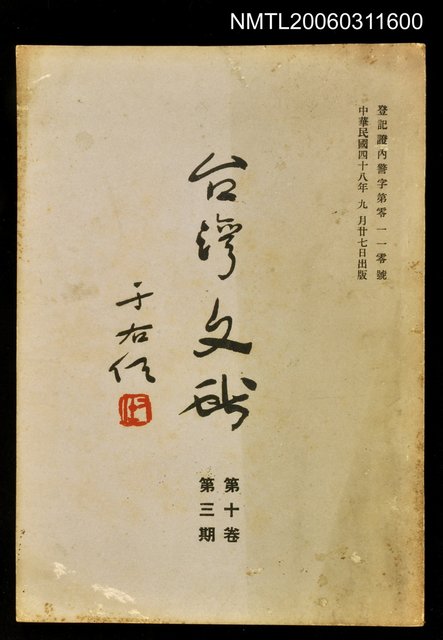 NMTL20060311600
登記證內警字第零一一零號
中華民國四十八年九月廿七日出版
台灣文獻
于右任
第十卷
第三期